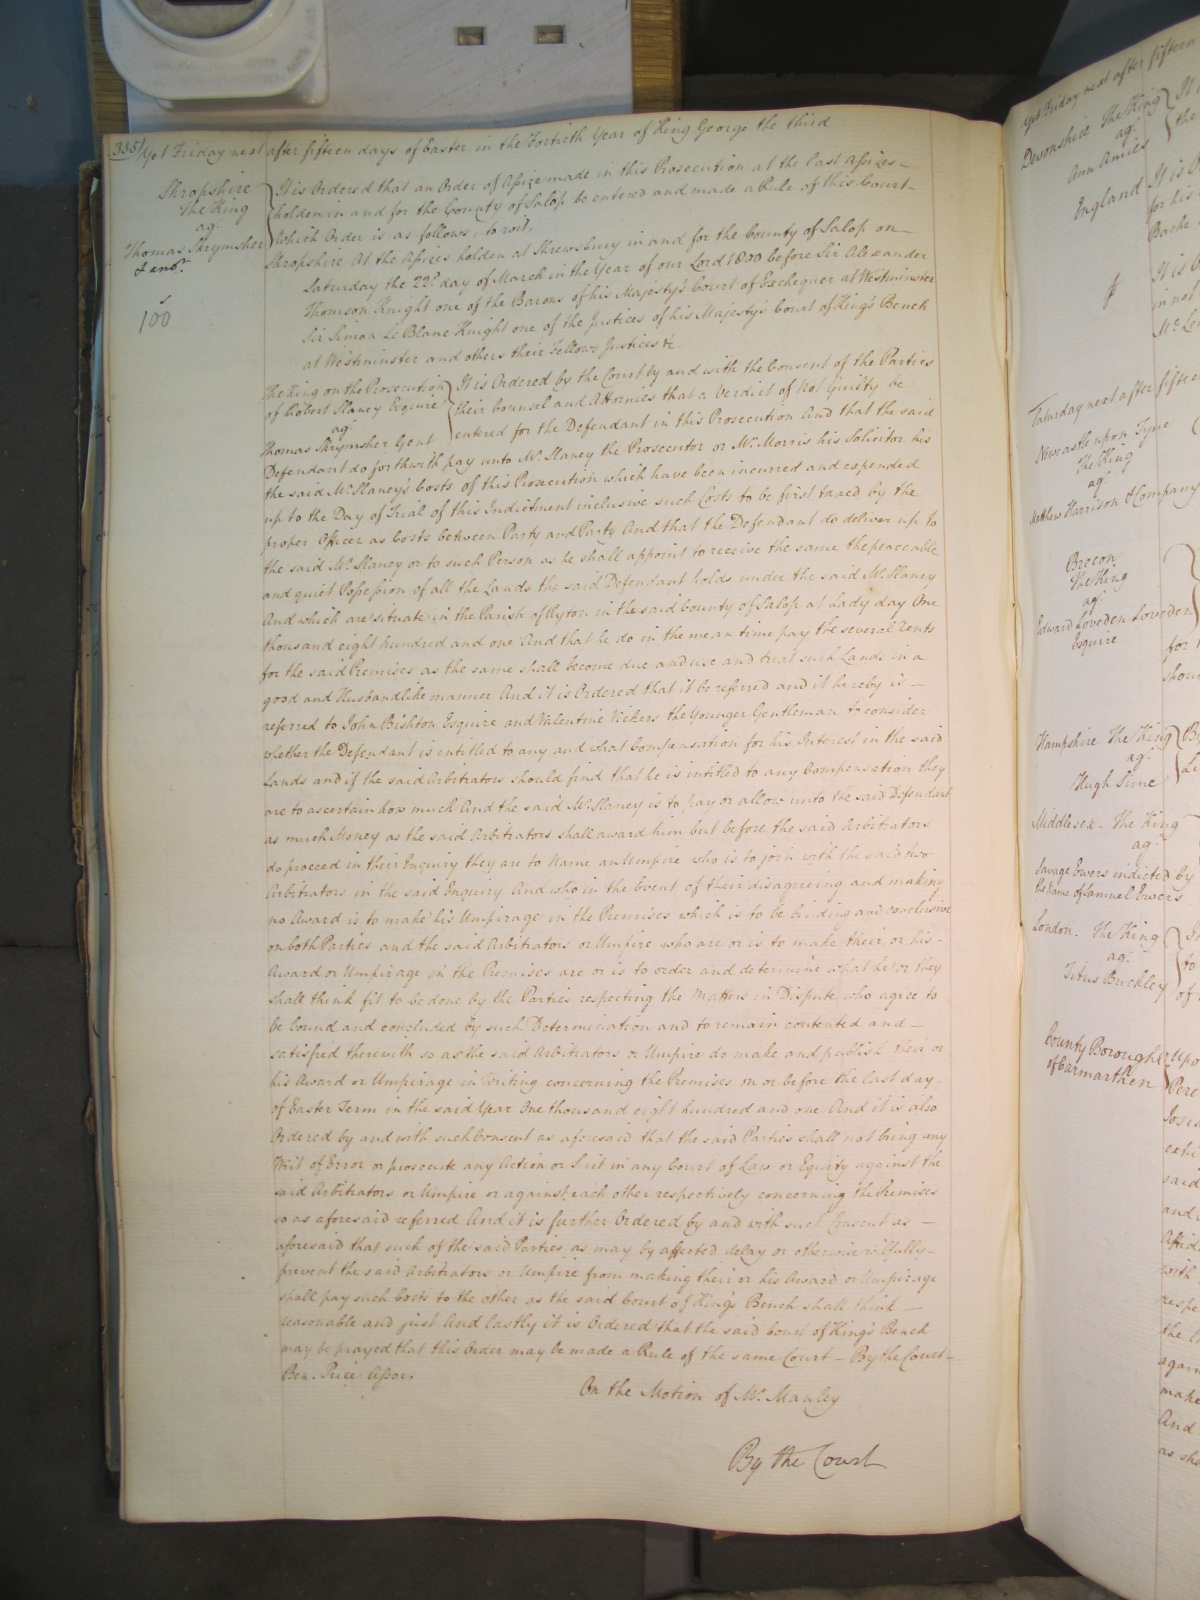 335
Yet Friday next after fifteen days of Easter in the Fortieth Year of King George the third
Shropshire
The King
agt.
Thomas Skrymsher
& anor.
5
100
It is Ordered that an Order of Assize made in this Prosecution at the last Assizes
holden in and for the County of Salop be entered and made a Rule of this Court
Which Order is as follows, to wit,
Shropshire At the Assizes holden at Shrewsbury in and for the County of Salop on
Saturday the 22d. day of March in the Year of our Lord 1800 before Sir Alexander
Thomson Knight one of the Barons of his Majesty's Court of Exchequer at Westminster
Sir Simon Le Blanc Knight one of the Justices of his Majesty's Court of King's Bench
at Westminster and others their Fellows Justices &c
The King on the Prosecution
of Robert Slaney Esquire
agt.
Thomas Skrymsher Gent
It is Ordered by the Court by and with the Consent of the Parties
their Counsel and Attornies that a Verdict of Not Guilty be
entered for the Defendant in this Prosecution And that the said
Defendant do forthwith pay unto Mr. Slaney the Prosecutor or Mr. Morris his Solicitor his
the said Mr. Slaney's Costs of this Prosecution which have been incurred and expended
up to the Day of Trial of this Indictment inclusive such Costs to be first taxed by the
proper Officer as Costs between Party and Party And that the Defendant do deliver up to
the said Mr. Slaney or to such Person as he shall appoint to receive the same the peaceable
and quiet Possession of all the Lands the said Defendant holds under the said Mr. Slaney
And which are situate in the Parish of Ryton in the said County of Salop at Lady day One
thousand eight hundred and one And that he do in the mean time pay the several Rents
for the said Premises as the same shall become due and use and treat such Lands in a
good and Husbandlike manner And it is Ordered that it be referred and it hereby is
referred to John Bishton Esquire and Valentine Vickers the Younger Gentleman to consider
whether the Defendant is entitled to any and what Compensation for his Interest in the said
Lands and if the said Arbitrators should find that he is intitled to any Compensation they
are to ascertain how much And the said Mr. Slaney is to pay or allow unto the said Defendant
as much Money as the said Arbitrators shall award him but before the said Arbitrators
do proceed in their Enquiry they are to Name an Umpire who is to join with the said two
Arbitrators in the said Enquiry And who in the Event of their disagreeing and making
no Award is to make his Umpirage in the Premises which is to be binding and conclusive
on both Parties and the said Arbitrators or Umpire who are or is to make their or his
Award or Umpirage in the Premises are or is to order and determine what he or they
shall think fit to be done by the Parties respecting the Matters in Dispute who agree to
be bound and concluded by such Determination and to remain contented and
satisfied therewith so as the said Arbitrators or Umpire do make and publish their or
his Award or Umpirage in Writing concerning the Premises on or before the last day
of Easter Term in the said Year One thousand eight hundred and one And it is also
Ordered by and with such Consent as aforesaid that the said Parties shall not bring any
Writ of Error or prosecute any Action or Suit in any Court of Law or Equity against the
said Arbitrators or Umpire or against each other respectively concerning the Premises
so as aforesaid referred And it is further Ordered by and with such Consent as
aforesaid that such of the said Parties as may by affected delay or otherwise wilfully
prevent the said Arbitrators or Umpire from making their or his Award or Umpirage
shall pay such Costs to the other as the said Court of King's Bench shall think
reasonable and just And lastly it is Ordered that the said Court of King's Bench
may be prayed that this Order may be made a Rule of the same Court – By the Court
Ben. Price Assoc.
On the Motion of Mr. Manley
By the Court
Yet Friday next after fifteen
Devonshire The King
agt.
Ann Amies
England
Saturday next after fifteen
Newcastle upon Tyne
The King
agt.
Matthew Harrison & Company
Brecon
The King
agt.
Edward Loveden Loveden
Esquire
Hampshire The King
agt.
Hugh Sime
Middlesex - The King
agt.
Savage Ewers indicted by
the Name of Samuel Ewers
London. The King
agt.
Titus Buckley
County Borough
of Carmarthen